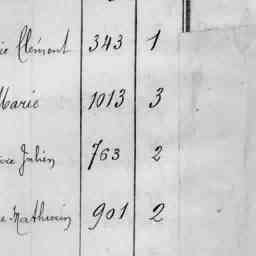 Clément 343 1
Marie 1013 3
Julien 763 2
Mathurin 901 2